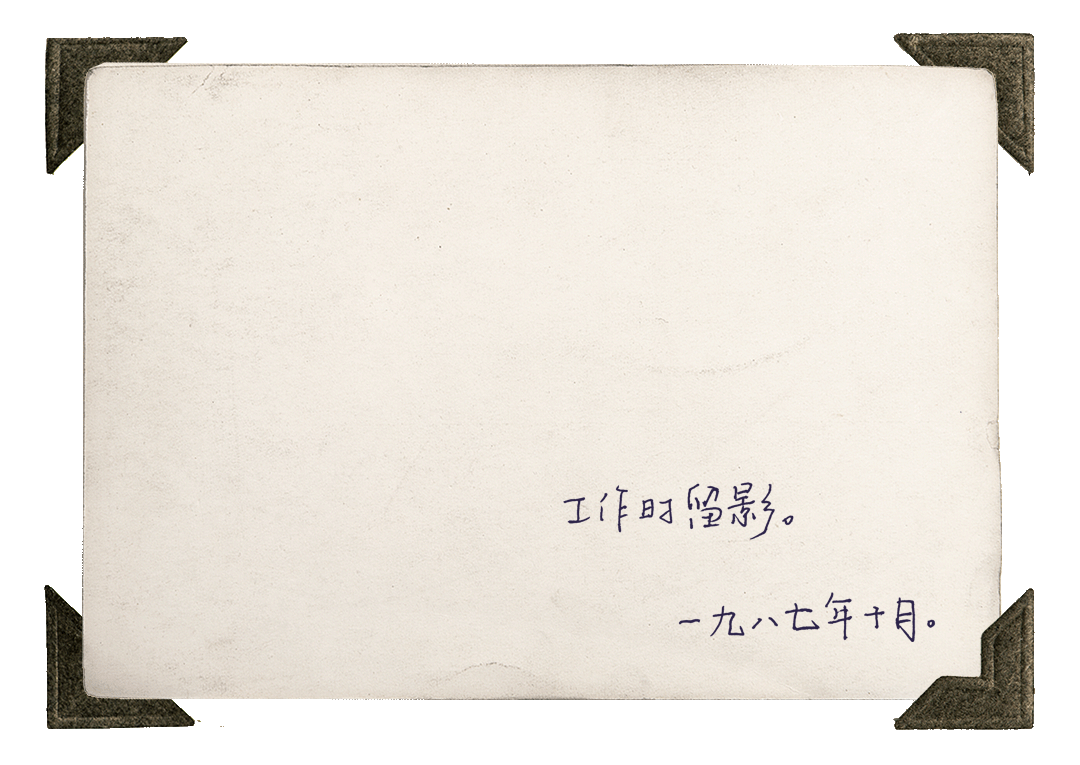 工作时留影。
一九八七年十月。